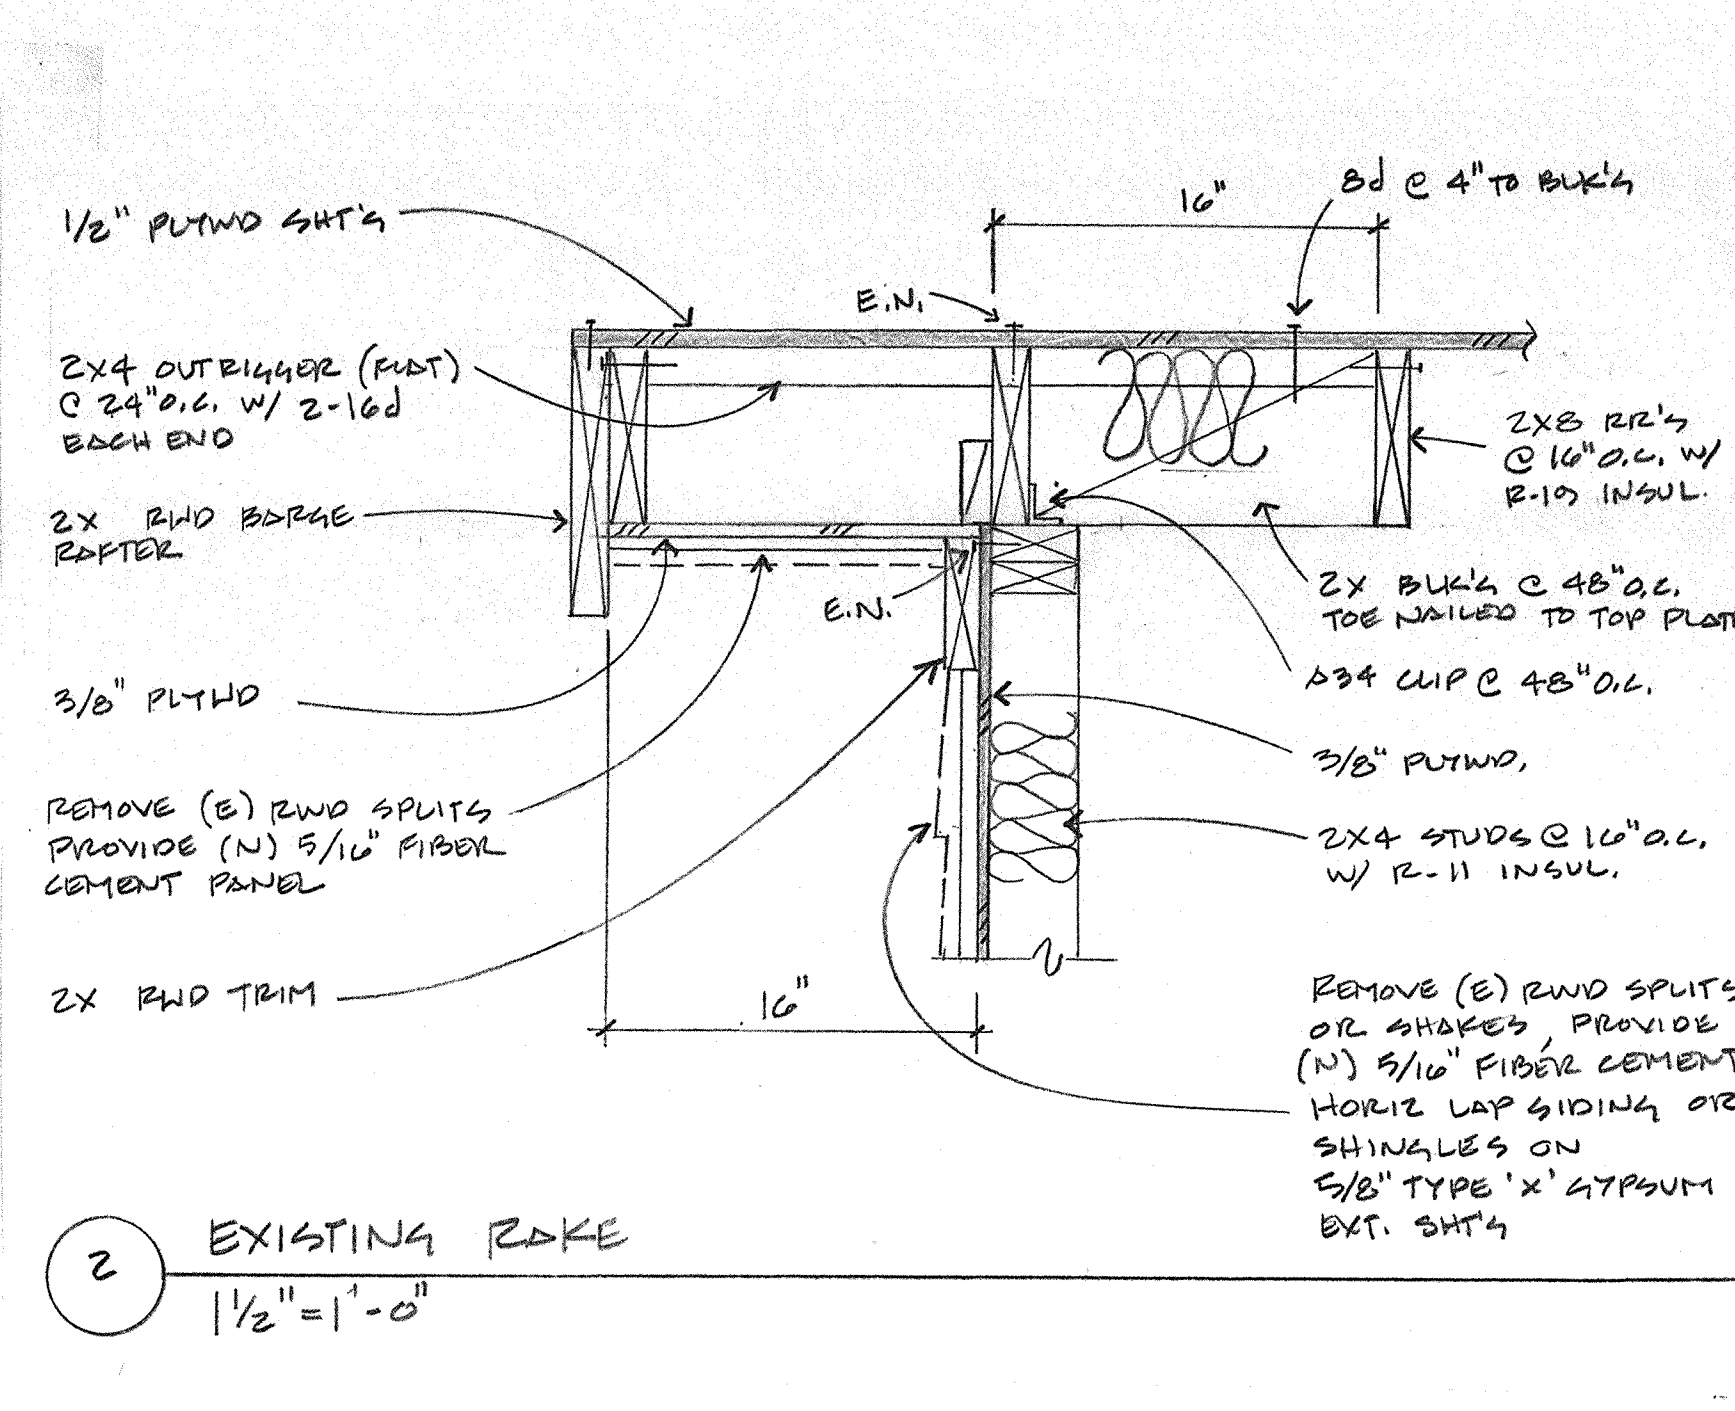 1/2" PLYWD SHT'G
16"
8d @ 4" TO BLK'G
E.N.
2X4 OUTRIGGER (FLAT)
@ 24" O.C. W/ 2-16d
EACH END
2X8 RR'S
@ 16" O.C. W/
R-19 INSUL.
2X RWD BARGE
RAFTER
2X BLK'G @ 48" O.C.
TOE NAILED TO TOP PLATE
E.N.
3/8" PLYWD
A34 CLIP @ 48" O.C.
3/8" PLYWD.
REMOVE (E) RWD SPLITS
PROVIDE (N) 5/16" FIBER
CEMENT PANEL
2X4 STUDS @ 16" O.C.
W/ R-11 INSUL.
2X RWD TRIM
16"
REMOVE (E) RWD SPLITS
OR SHAKES, PROVIDE
(N) 5/16" FIBER CEMENT
HORIZ LAP SIDING OR
SHINGLES ON
5/8" TYPE 'X' GYPSUM
EXT. SHT'G
2
EXISTING RAKE
1 1/2" = 1'-0"